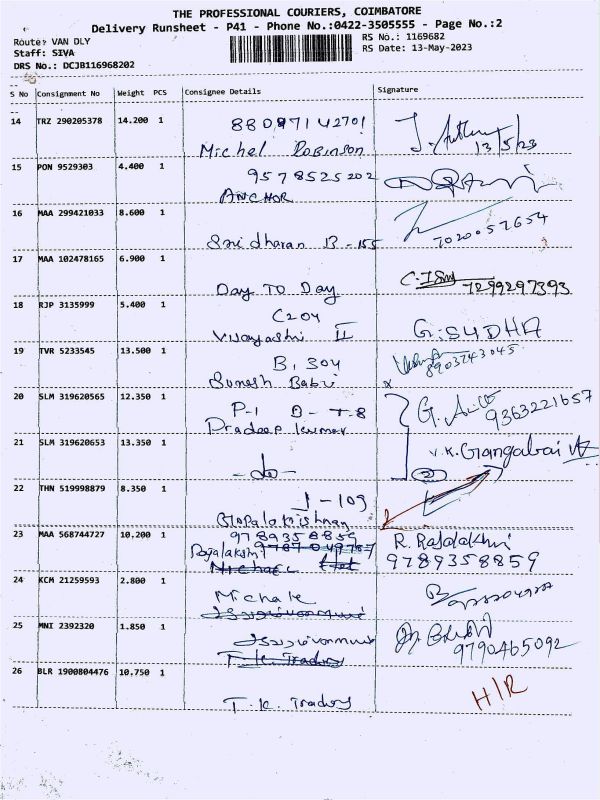 THE PROFESSIONAL COURIERS, COIMBATORE
Delivery Runsheet - P41 - Phone No.:0422-3505555 - Page No.:2
Route: VAN DLY
RS No.: 1169682
Staff: SIVA
RS Date: 13-May-2023
DRS No.: DCJB116968202
S No Consignment No Weight PCS Consignee Details Signature
14 TRZ 290205378 14.200 1
Michel Robinson 13/5/23
15 PON 9529303 4.400 1 9578525202
ANCHOR
16 MAA 299421033 8.600 1
Sridharan B-155 7020057654
17 MAA 102478165 6.900 1
Day To Day 7299297393
18 RJP 3135999 5.400 1 C204
Vijayashri II G.SUDHA
19 TVR 5233545 13.500 1 B, 304
Suresh Babu 8903743045
20 SLM 319620565 12.350 1 P-1 B-T-8 9363221657
Pradeep kumar
21 SLM 319620653 13.350 1 V.K. Gangabai
-do-
22 THN 519998879 8.350 1 J-109
Gopalakrishnan
23 MAA 568744727 10.200 1 9789358859 R. Rajalakshmi
Rajalakshmi 9789358859
24 KCM 21259593 2.800 1 Michale
25 MNI 2392320 1.850 1
T.K. Trading 9790465092
26 BLR 1900804476 10.750 1 H/R
T.K. Trading